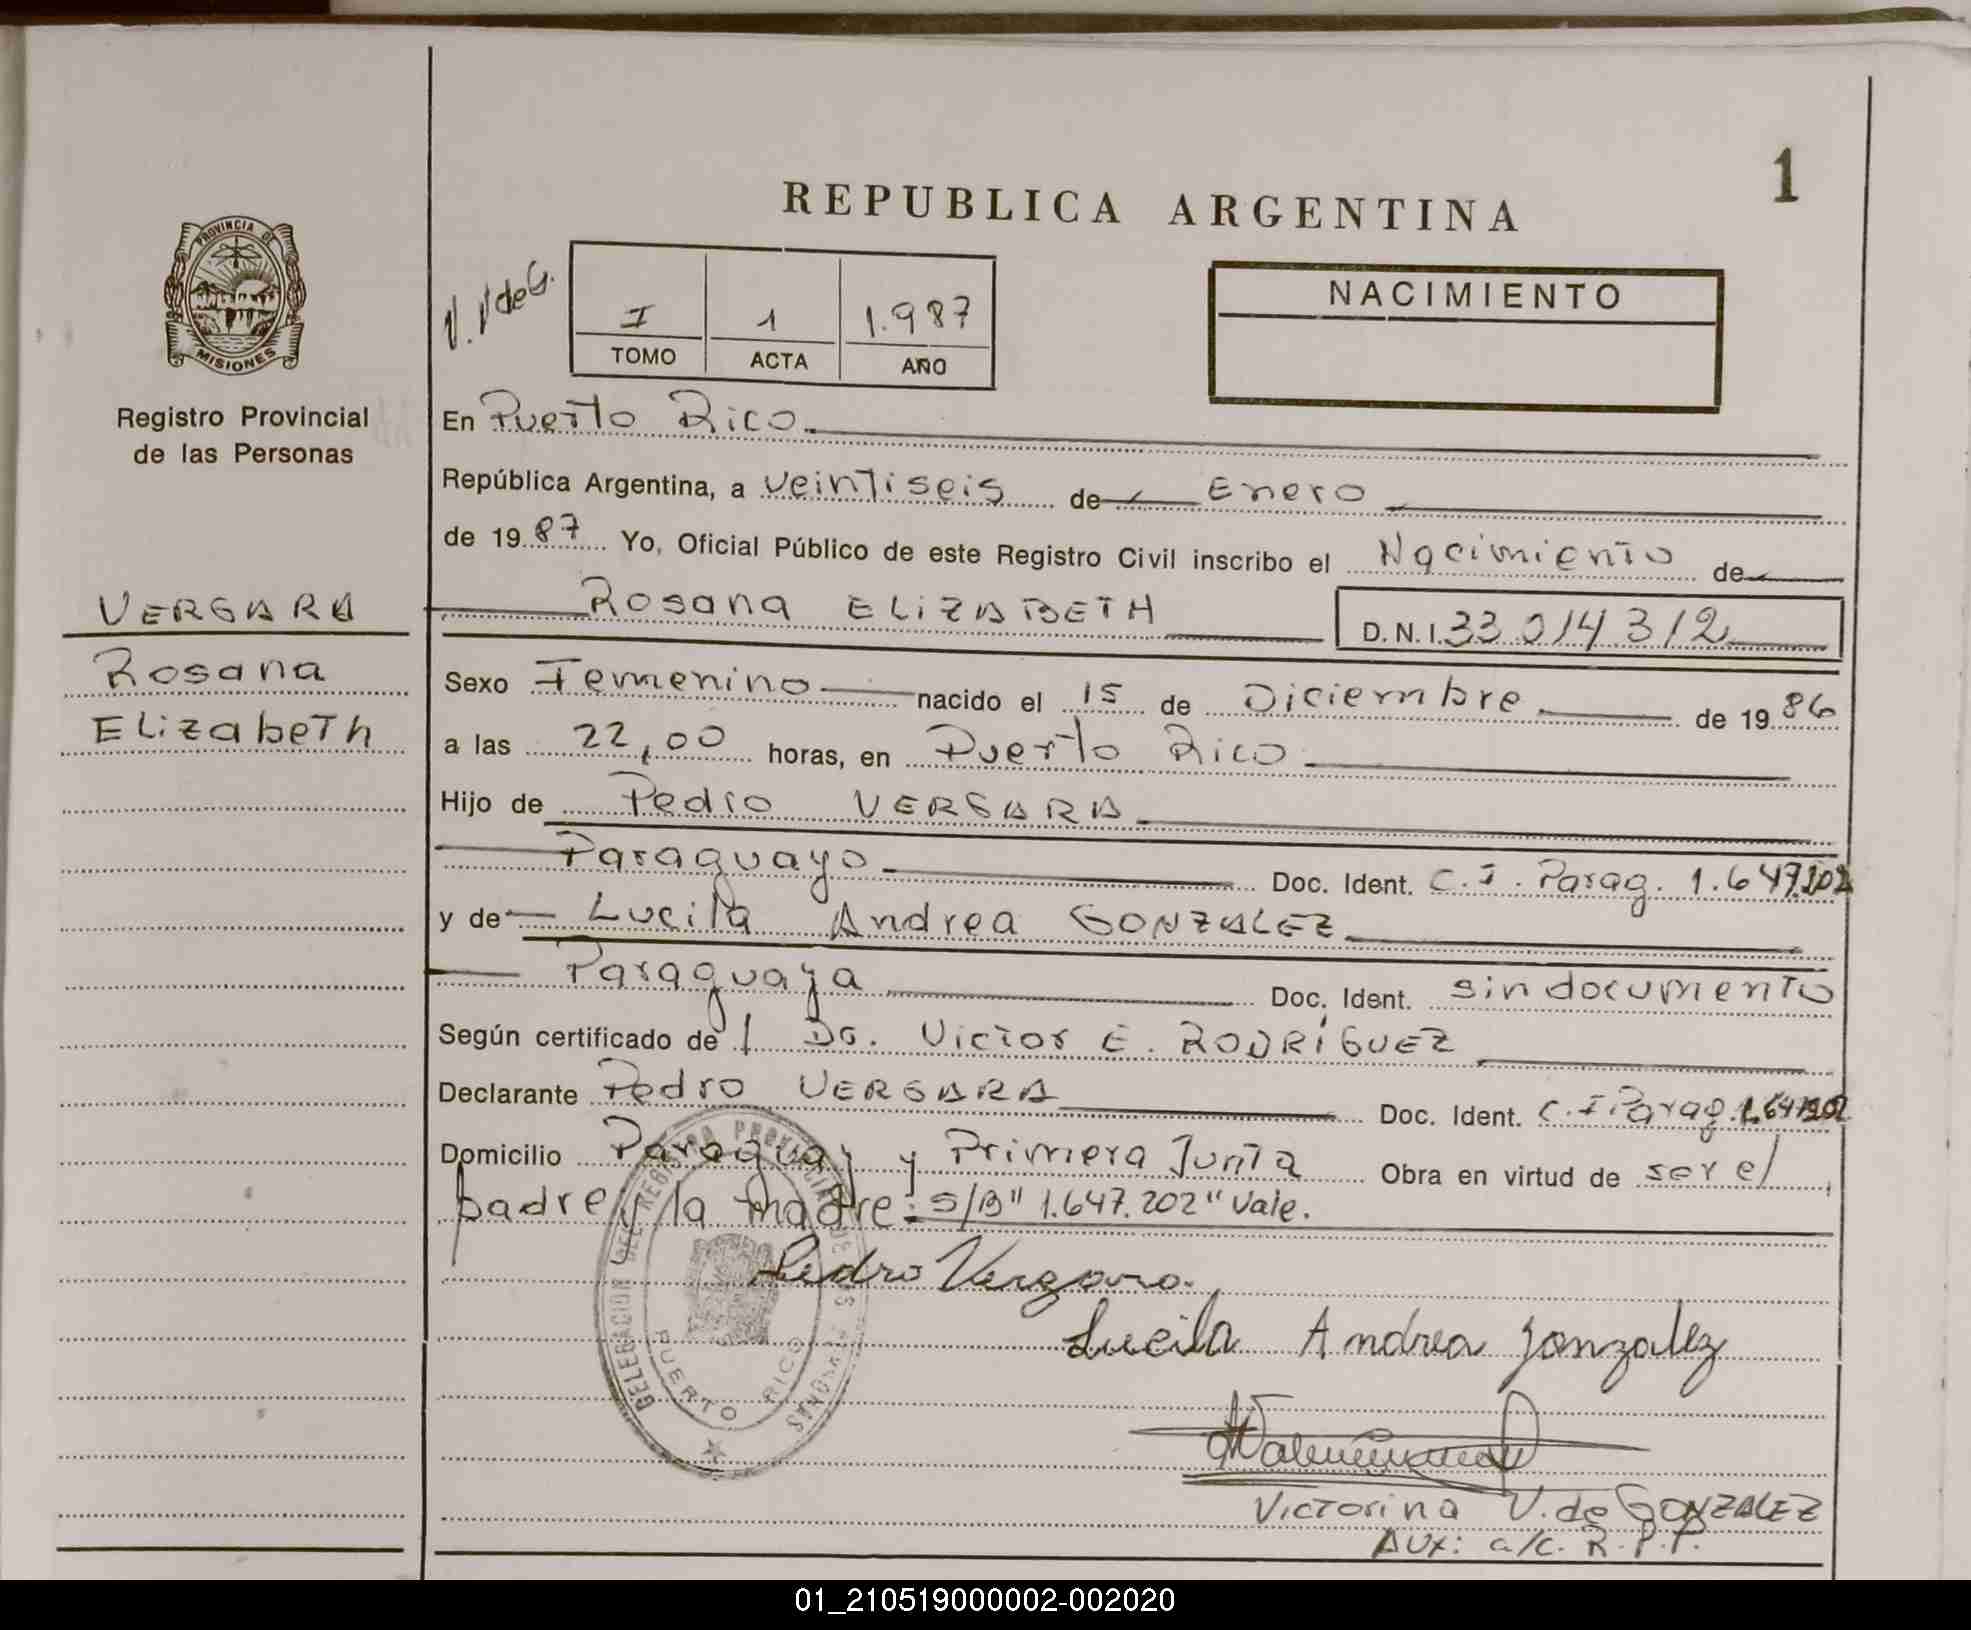 1
REPUBLICA ARGENTINA
PROVINCIA DE
MISIONES
Registro Provincial
de las Personas
V. V de G.
I 1 1.987
TOMO ACTA AÑO
NACIMIENTO
En Puerto Rico
República Argentina, a veintiseis de Enero
de 19 87 Yo, Oficial Público de este Registro Civil inscribo el Nacimiento de
VERGARA
Rosana ELIZABETH D.N.I. 33 014 312
Rosana
Elizabeth
Sexo Femenino nacido el 15 de Diciembre de 19 86
a las 22,00 horas, en Puerto Rico
Hijo de Pedro VERGARA
Paraguayo Doc. Ident. C.I. Parag. 1.647.202
y de Lucila Andrea GONZALEZ
Paraguaya Doc. Ident. sin documento
Según certificado de / Dr. Victor E. RODRÍGUEZ
Declarante Pedro VERGARA Doc. Ident. C.I. Parag. 1.647.202
Domicilio Paraguay y Primera Junta Obra en virtud de ser el
padre y la madre: S/B" 1.647.202" Vale.
DELEGACION DEL REGISTRO PROVINCIAL DE LAS PERSONAS
PUERTO RICO
Pedro Vergara.
Lucila Andrea Gonzalez
Victorina V. de GONZALEZ
Aux: a/c. R.P.P.
01_210519000002-002020